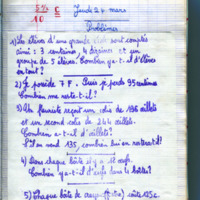 5½ C Jeudi 24 mars
10
Problèmes
1) Les élèves d'une grande école sont comptés
ainsi : 3 centaines, 4 dizaines et un
groupe de 5 élèves. Combien y a-t-il d'élèves
en tout ?
2) Je possède 7 F. Puis je perds 95 centimes
Combien me reste-t-il ?
3) Un fleuriste reçoit un colis de 136 œillets
et un second colis de 244 œillets.
Combien a-t-il d'œillets ?
S'il en vend 135, combien lui en restera-t-il ?
4) Dans chaque boîte il y a 12 œufs.
Combien y a-t-il d'œufs dans 4 boîtes ?
5) Chaque boîte de coûte 125c.